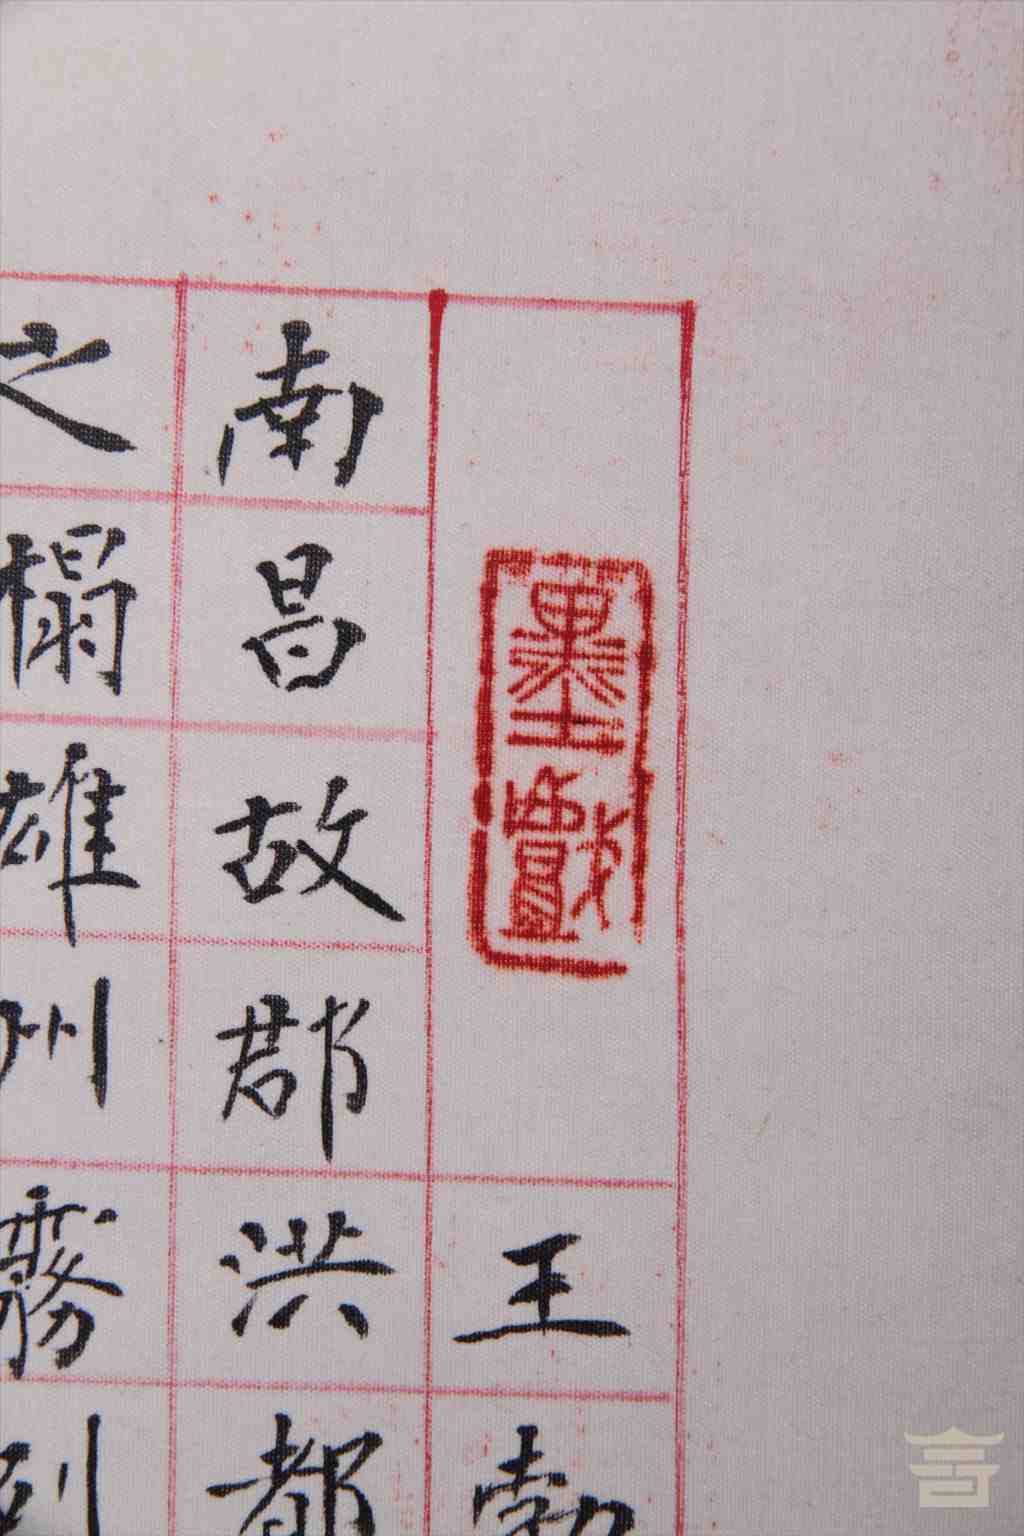 墨戲
王勃
南昌故郡洪都
之榻雄州霧列